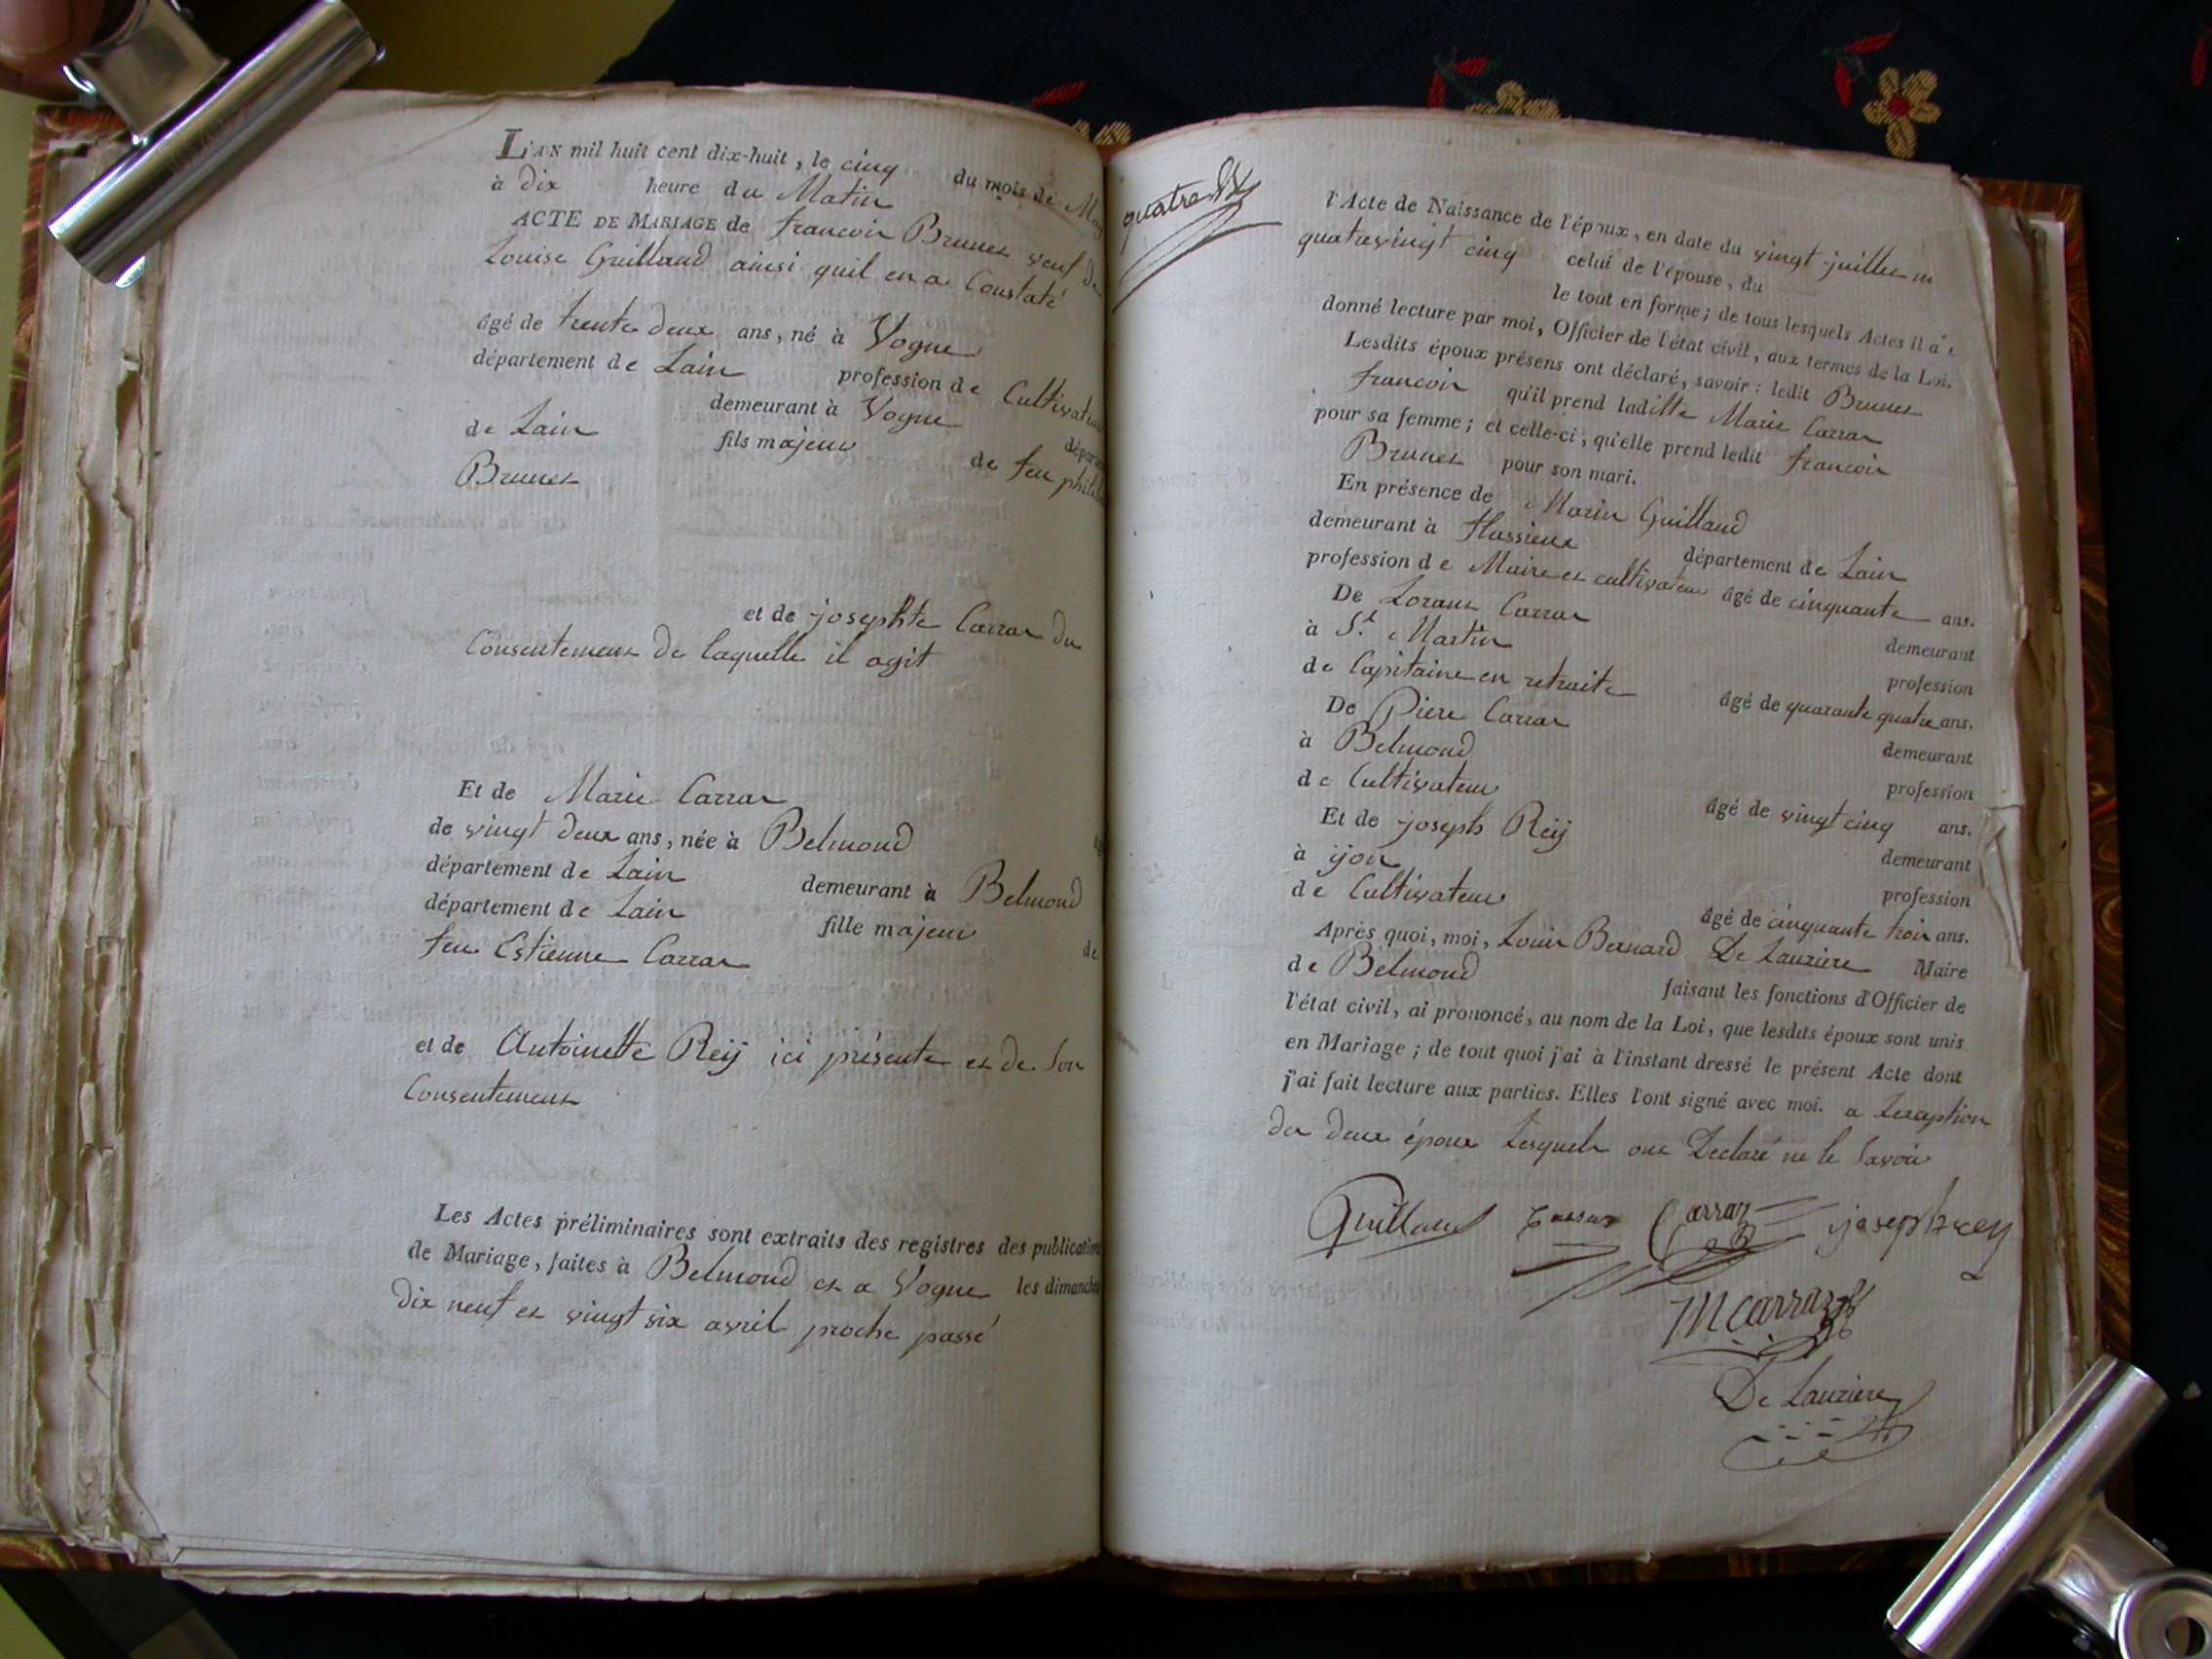 L'AN mil huit cent dix-huit, le cinq du mois de May
à dix heure du Matin
ACTE DE MARIAGE de francois Brunet veuf de
Louise Guillaud ainsi quil en a Constaté
âgé de trente deux ans, né à Vogne
département de Lain profession de Cultivateur
demeurant à Vogne départ
de Lain fils majeur de feu phili
Brunet
et de josephte Carrar du
Consentement de laquelle il agit
Et de Marie Carrar
de vingt deux ans, née à Belmond
département de Lain demeurant à Belmond
département de Lain fille majeur de
feu Estienne Carrar
et de Antoinette Reÿ ici présente et de son
Consentement
Les Actes préliminaires sont extraits des registres des publication
de Mariage, faites à Belmond et a Vogne les dimanches
dix neuf et vingt six avril proche passé
quatre
l'Acte de Naissance de l'époux, en date du vingt juillet m
quatrevingt cinq celui de l'épouse, du
le tout en forme; de tous lesquels Actes il a é
donné lecture par moi, Officier de l'état civil, aux termes de la Loi.
Lesdits époux présens ont déclaré, savoir: ledit Brunet
francois qu'il prend laditte Marie Carrar
pour sa femme; et celle-ci, qu'elle prend ledit francois
Brunet pour son mari.
En présence de Marin Guillaud
demeurant à flassieux département de Lain
profession de Maire et cultivateur âgé de cinquante ans.
De Lorant Carrar demeurant
à St. Martin profession
de Capitaine en retraite âgé de quarante quatre ans.
De Piere Carrar demeurant
à Belmond profession
de Cultivateur âgé de vingt cinq ans.
Et de joseph Reÿ demeurant
à yon profession
de Cultivateur âgé de cinquante trois ans.
Après quoi, moi, Louis Bernard De Lauziere Maire
de Belmond faisant les fonctions d'Officier de
l'état civil, ai prononcé, au nom de la Loi, que lesdits époux sont unis
en Mariage; de tout quoi j'ai à l'instant dressé le présent Acte dont
j'ai fait lecture aux parties. Elles l'ont signé avec moi. a Lexception
des deux époux Lesquels ont Declaré ne le savoir
Guillaud Carraz josephrey
M carraz
De Lauziere